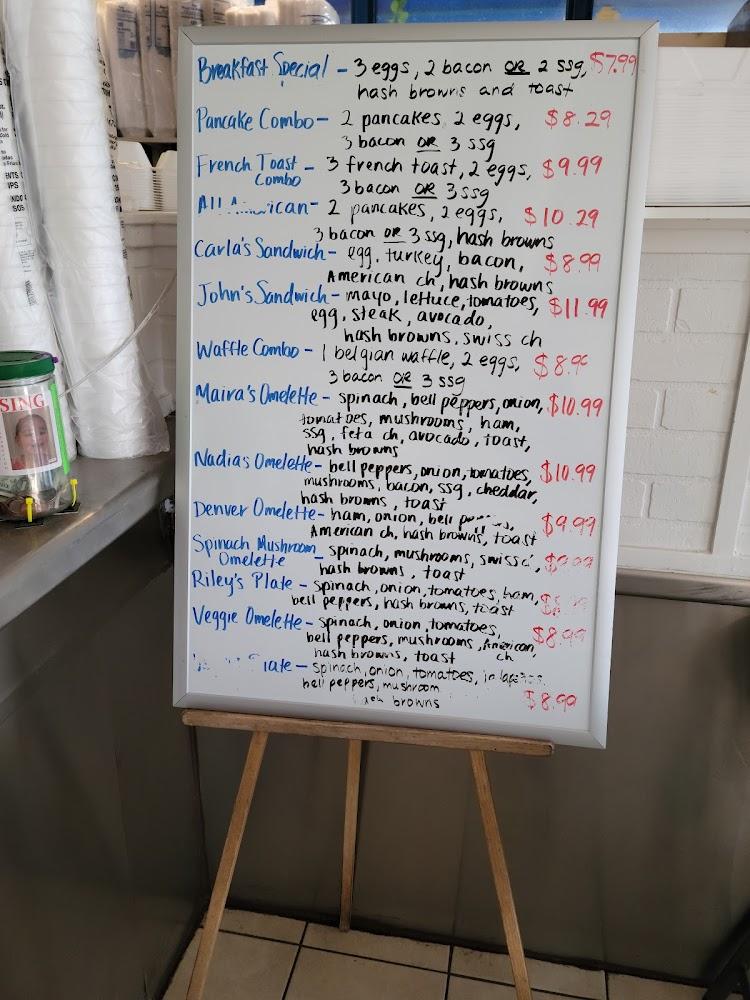 Breakfast Special - 3 eggs, 2 bacon OR 2 ssg, $7.99
hash browns and toast
Pancake Combo- 2 pancakes, 2 eggs, $8.29
3 bacon OR 3 ssg
French Toast - 3 french toast, 2 eggs, $9.99
Combo 3 bacon OR 3 ssg
2 pancakes, 2 eggs, $10.29
3 bacon OR 3 ssg, hash browns
Carla's Sandwich- egg, turkey, bacon, $8.99
American ch, hash browns
John's Sandwich- mayo, lettuce, tomatoes, $11.99
egg, steak, avocado,
hash browns, swiss ch
Waffle Combo- 1 belgian waffle, 2 eggs,
3 bacon OR 3 ssg
Maira's Omelette- spinach, bell peppers, onion, $10.99
tomatoes, mushrooms, ham,
ssg, feta ch, avocado, toast,
hash browns
Nadia's Omelette- bell peppers, onion, tomatoes, $10.99
mushrooms, bacon, ssg, cheddar,
hash browns, toast
Denver Omelette- ham, onion, bell $9.99
American ch, hash browns, toast
Spinach Mushroom - spinach, mushrooms, swiss
Omelette hash browns, toast
Riley's Plate - spinach, onion, tomatoes, ham,
bell peppers, hash browns, toast
Veggie Omelette- spinach, onion, tomatoes, $8.99
bell peppers, mushrooms, American
hash browns, toast ch
spinach, onion, tomatoes,
bell peppers, mushroom
browns $8.99
SING